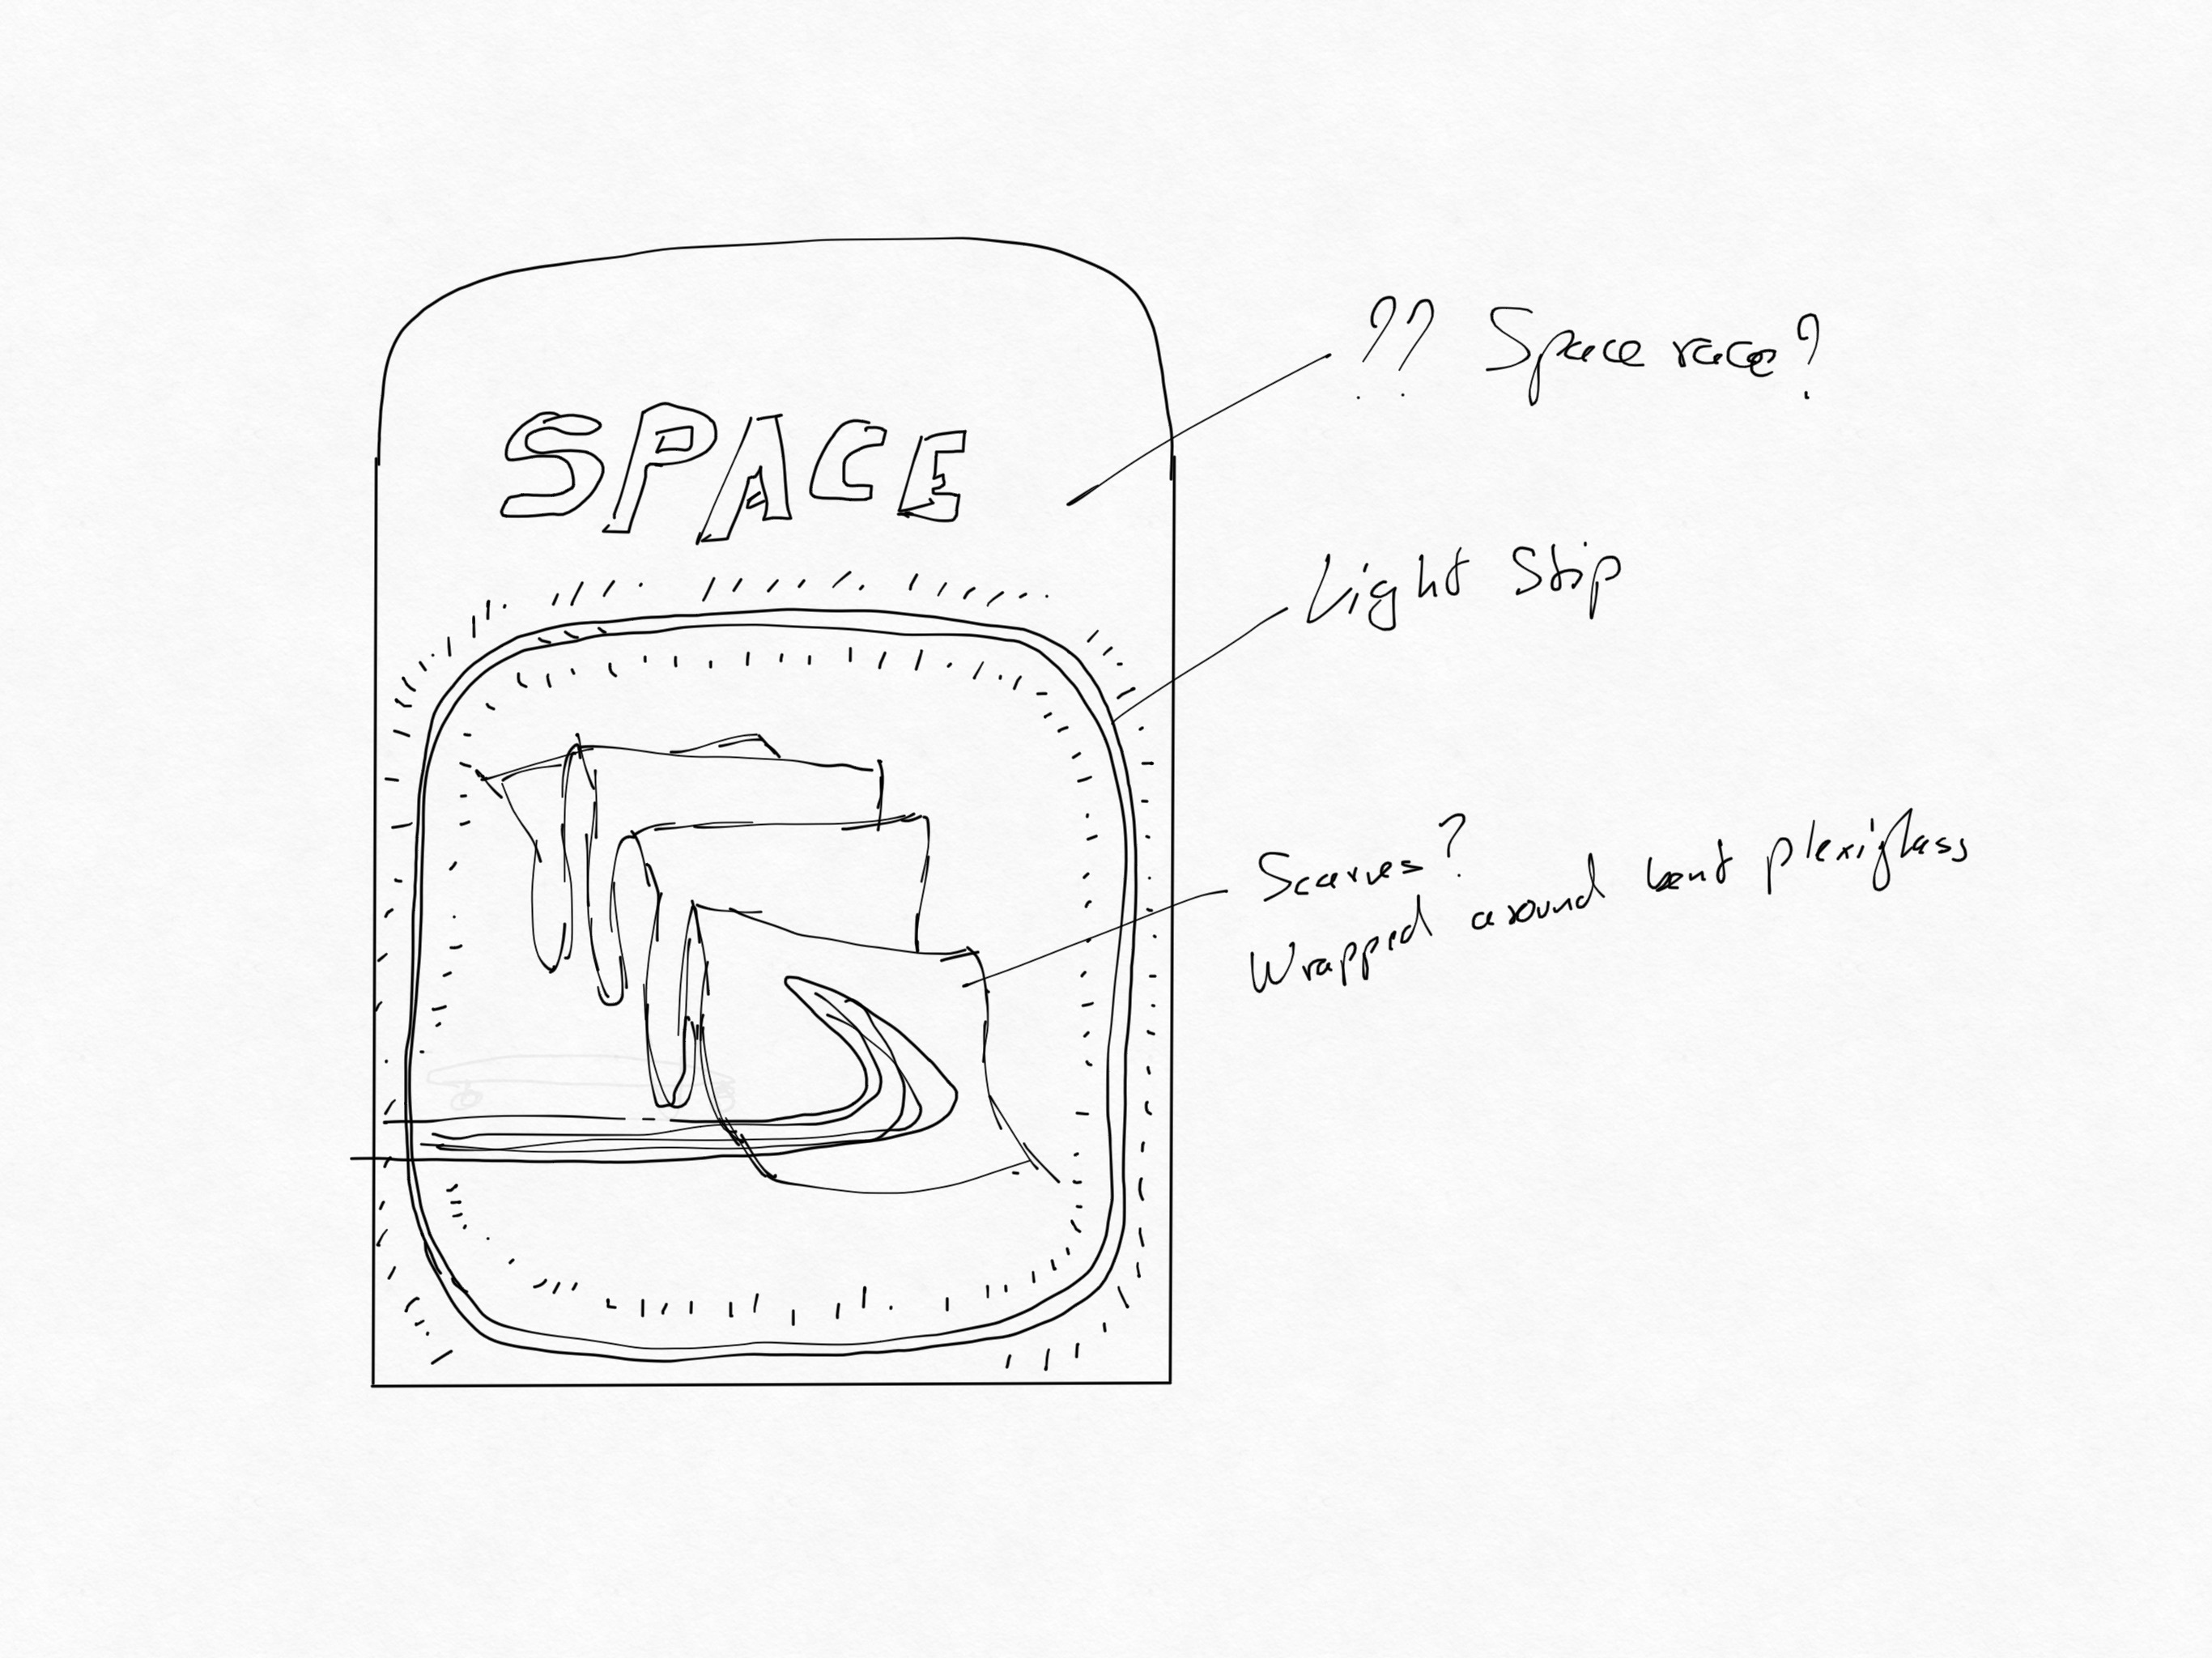 SPACE
?? Space race?
Light Strip
Scarves?
Wrapped around bent plexiglass